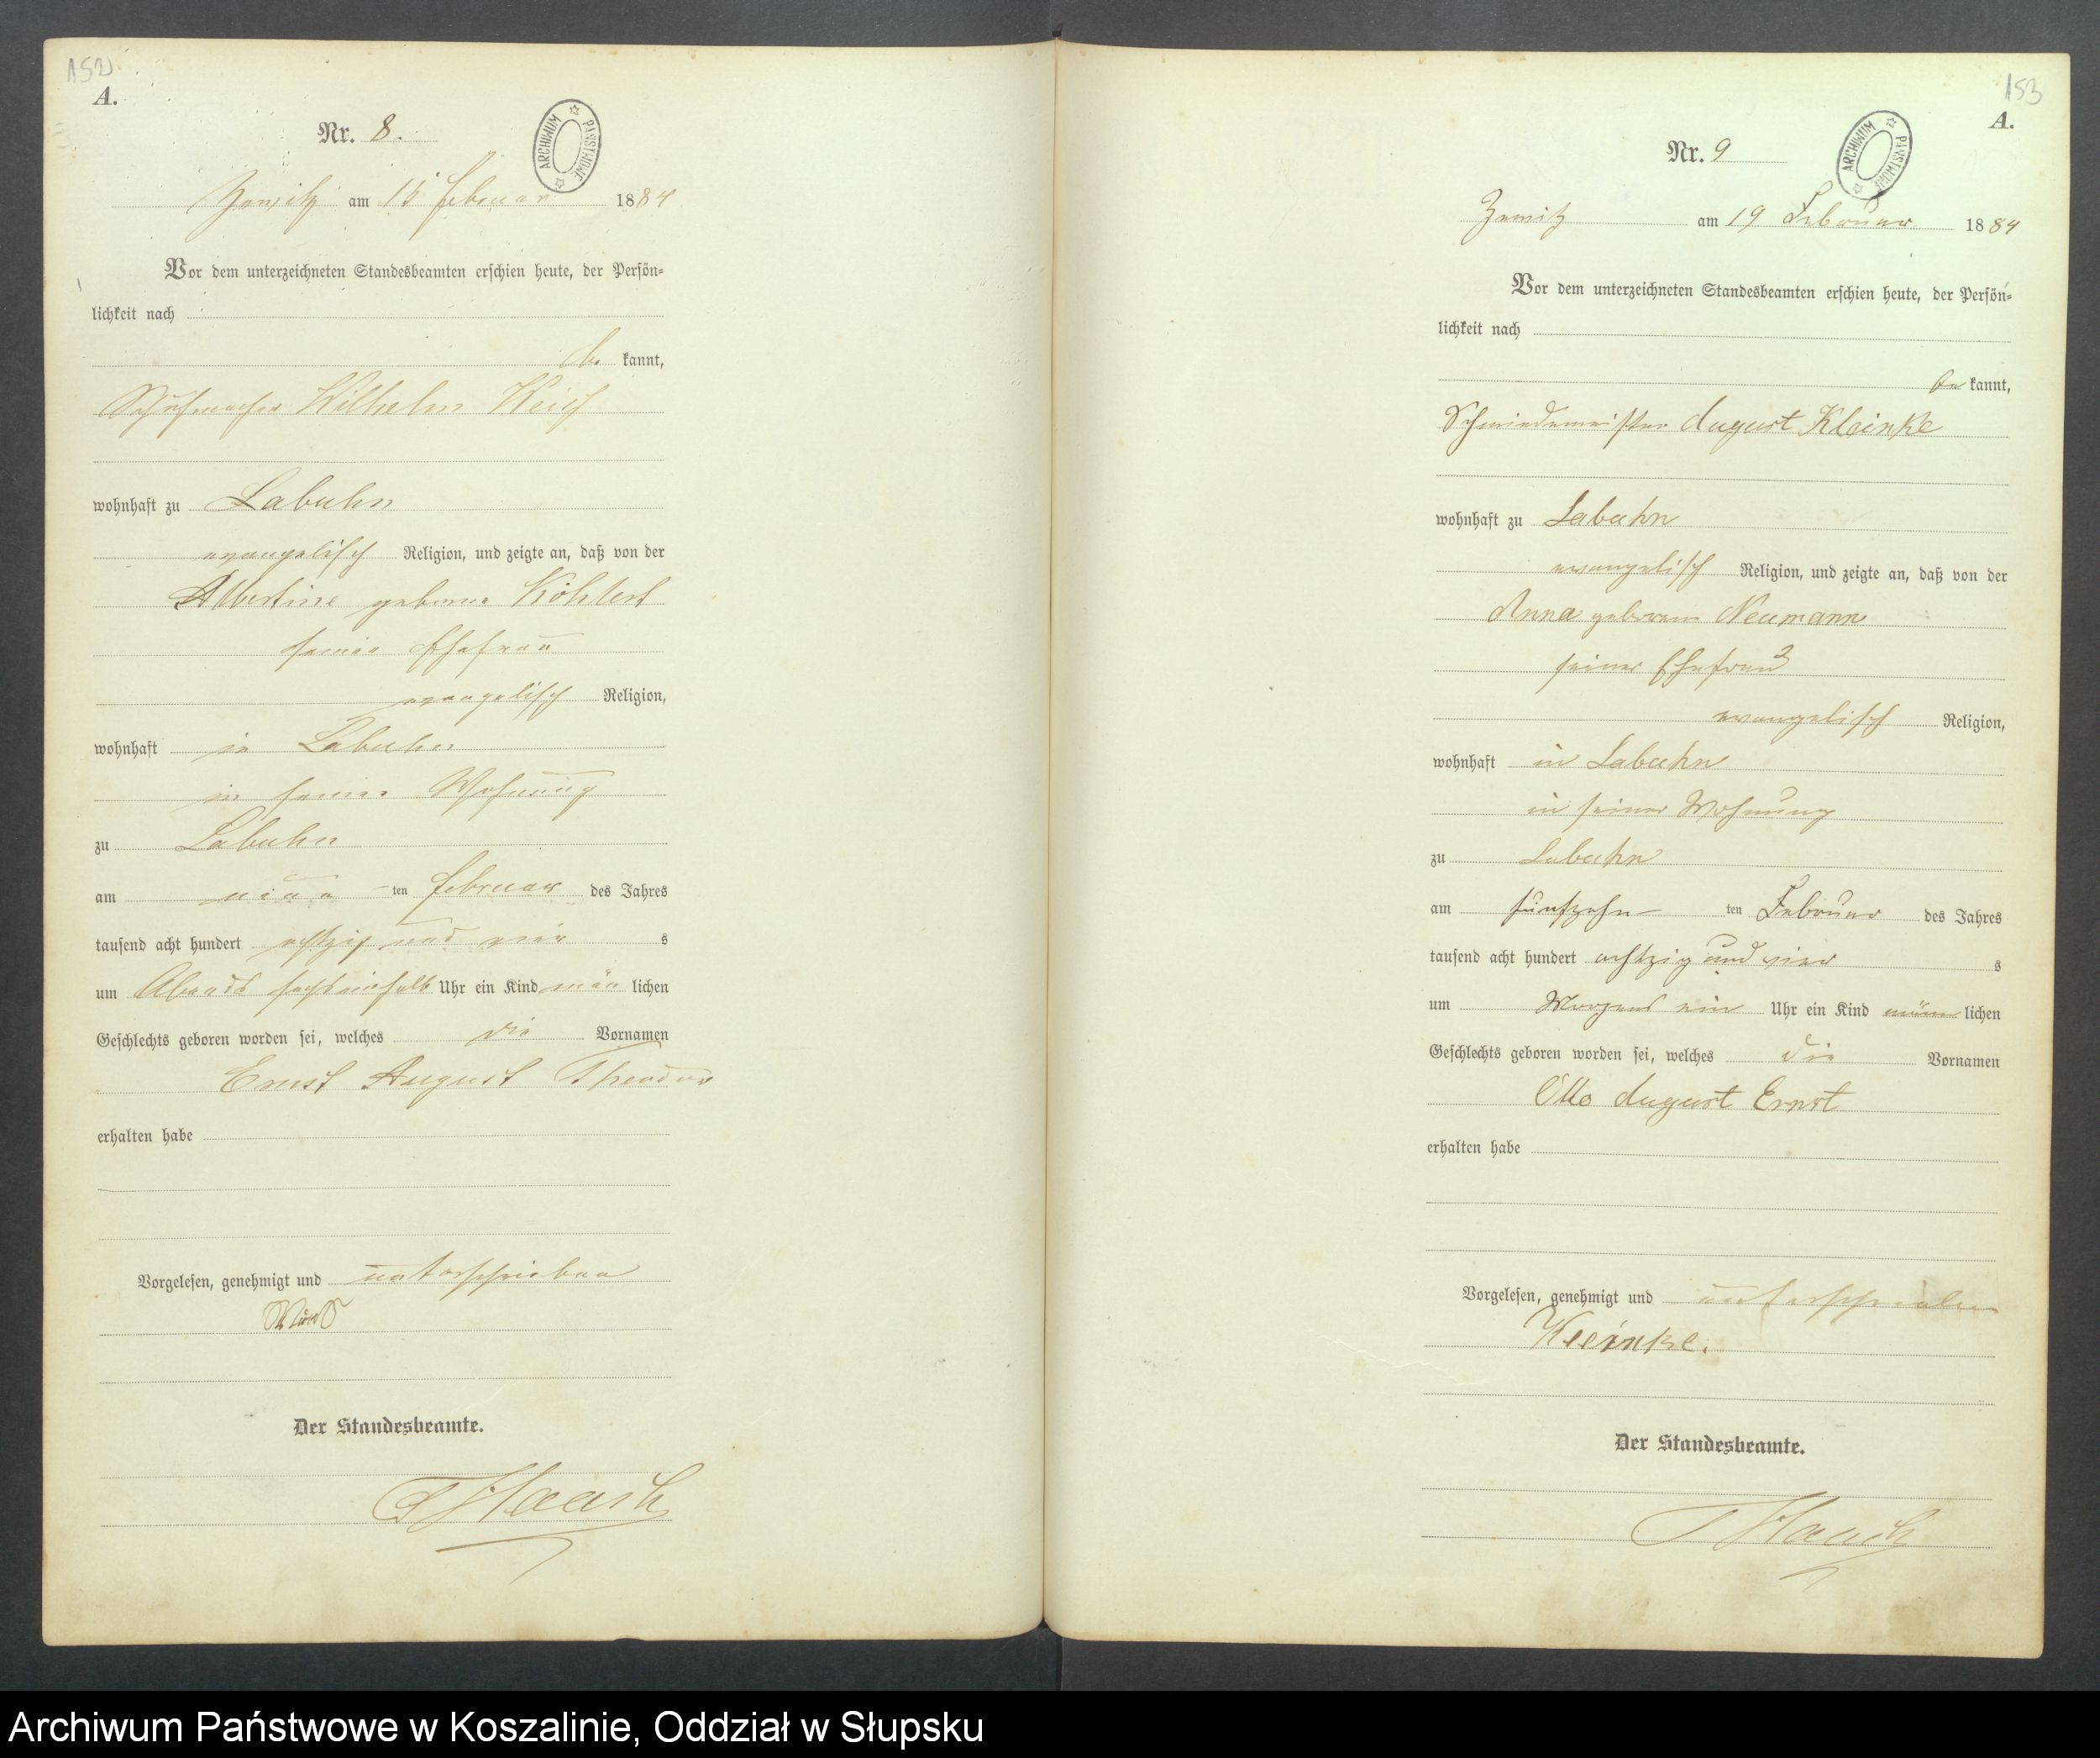 152
A.
Nr. 8.
ARCHIWUM PAŃSTWOWE
am 15 Februar 1884
Vor dem unterzeichneten Standesbeamten erschien heute, der Persön-
lichkeit nach
be kannt,
Schuhmacher Wilhelm
wohnhaft zu Labuhn
evangelisch Religion, und zeigte an, daß von der
Albertine geborne
seiner Ehefrau
evangelisch Religion,
wohnhaft in Labuhn
in seiner Wohnung
zu Labuhn
am neun ten Februar des Jahres
tausend acht hundert achtzig und vier s
um Abends Uhr ein Kind män lichen
Geschlechts geboren worden sei, welches die Vornamen
Ernst August Theodor
erhalten habe
Vorgelesen, genehmigt und unterschrieben
Der Standesbeamte.
153
A.
Nr. 9
ARCHIWUM PAŃSTWOWE
Zewitz am 19 Februar 1884
Vor dem unterzeichneten Standesbeamten erschien heute, der Persön-
lichkeit nach
be kannt,
Schmiedemeister August Kleinke
wohnhaft zu Labuhn
evangelisch Religion, und zeigte an, daß von der
Anna geborene Neumann
seiner Ehefrau
evangelisch Religion,
wohnhaft in Labuhn
in seiner Wohnung
zu Labuhn
am fünfzehn ten Februar des Jahres
tausend acht hundert achtzig und vier s
um Morgens ein Uhr ein Kind män lichen
Geschlechts geboren worden sei, welches die Vornamen
Otto August Ernst
erhalten habe
Vorgelesen, genehmigt und unterschrieben
Kleinke.
Der Standesbeamte.
Archiwum Państwowe w Koszalinie, Oddział w Słupsku